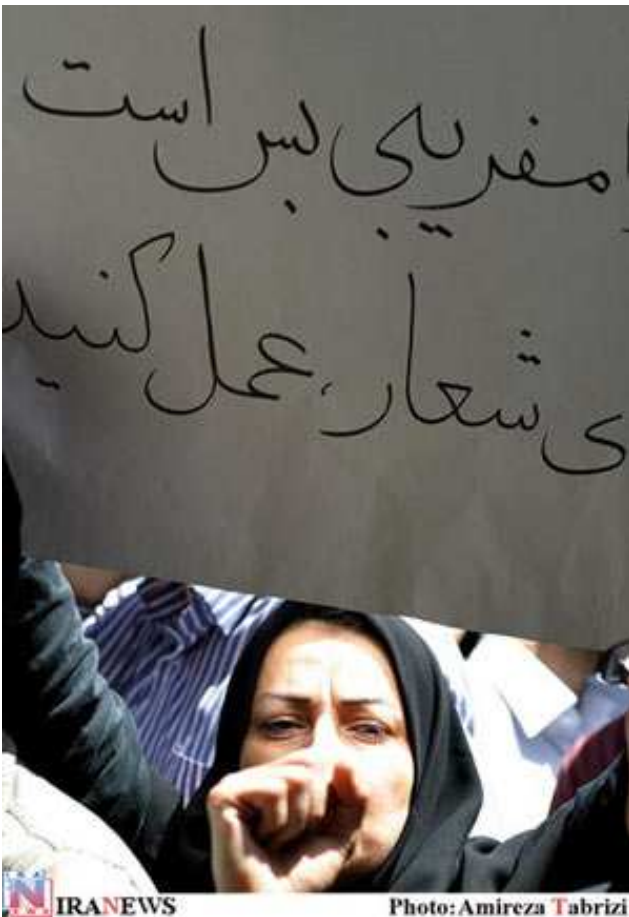 امفریبی بس است
ی شعار، عمل کنید
IRANEWS
Photo: Amireza Tabrizi